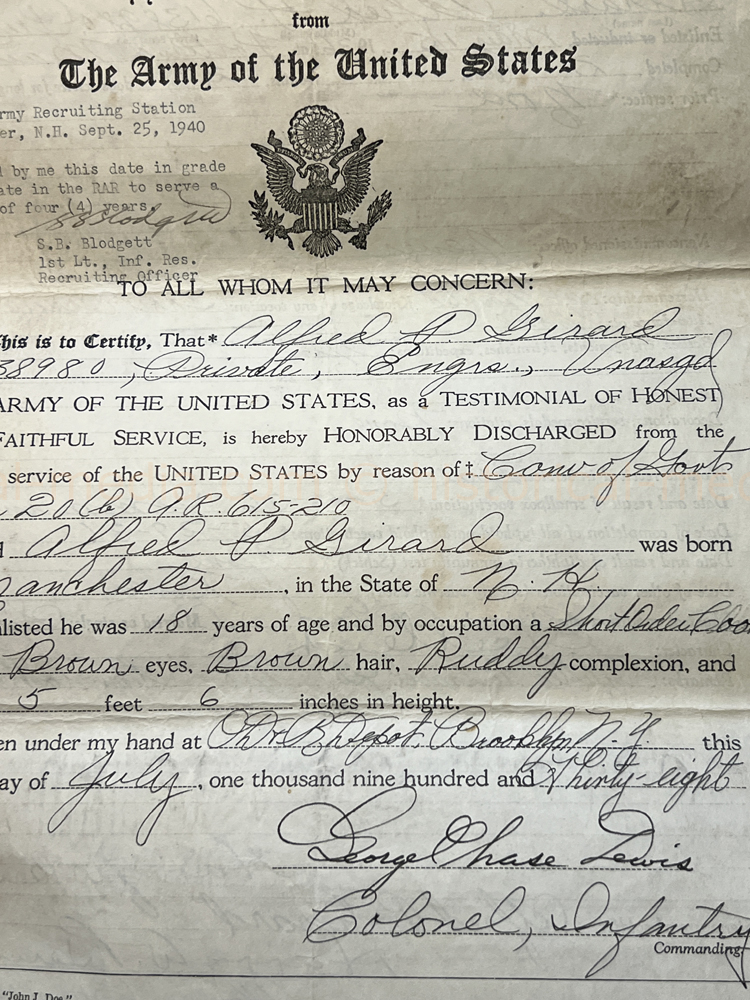 from
The Army of the United States
rmy Recruiting Station
er, N.H. Sept. 25, 1940
d by me this date in grade
ate in the RAR to serve a
of four (4) years.
S.B. Blodgett
S.B. Blodgett
1st Lt., Inf. Res.
Recruiting Officer
TO ALL WHOM IT MAY CONCERN:
his is to Certify, That* Alfred P Girard
38980, Private, Engrs., Unasgd
ARMY OF THE UNITED STATES, as a TESTIMONIAL OF HONEST
FAITHFUL SERVICE, is hereby HONORABLY DISCHARGED from the
service of the UNITED STATES by reason of ‡ Conv of Govt
20(b) A.R. 615-210
d Alfred P. Girard was born
anchester, in the State of N.H.
nlisted he was 18 years of age and by occupation a Short Order Coo
Brown eyes, Brown hair, Ruddy complexion, and
5 feet 6 inches in height.
en under my hand at Depot, Brooklyn, N.Y. this
ay of July, one thousand nine hundred and Thirty-eight
George Chase Lewis
Colonel, Infantry
Commanding
"John J. Doe."